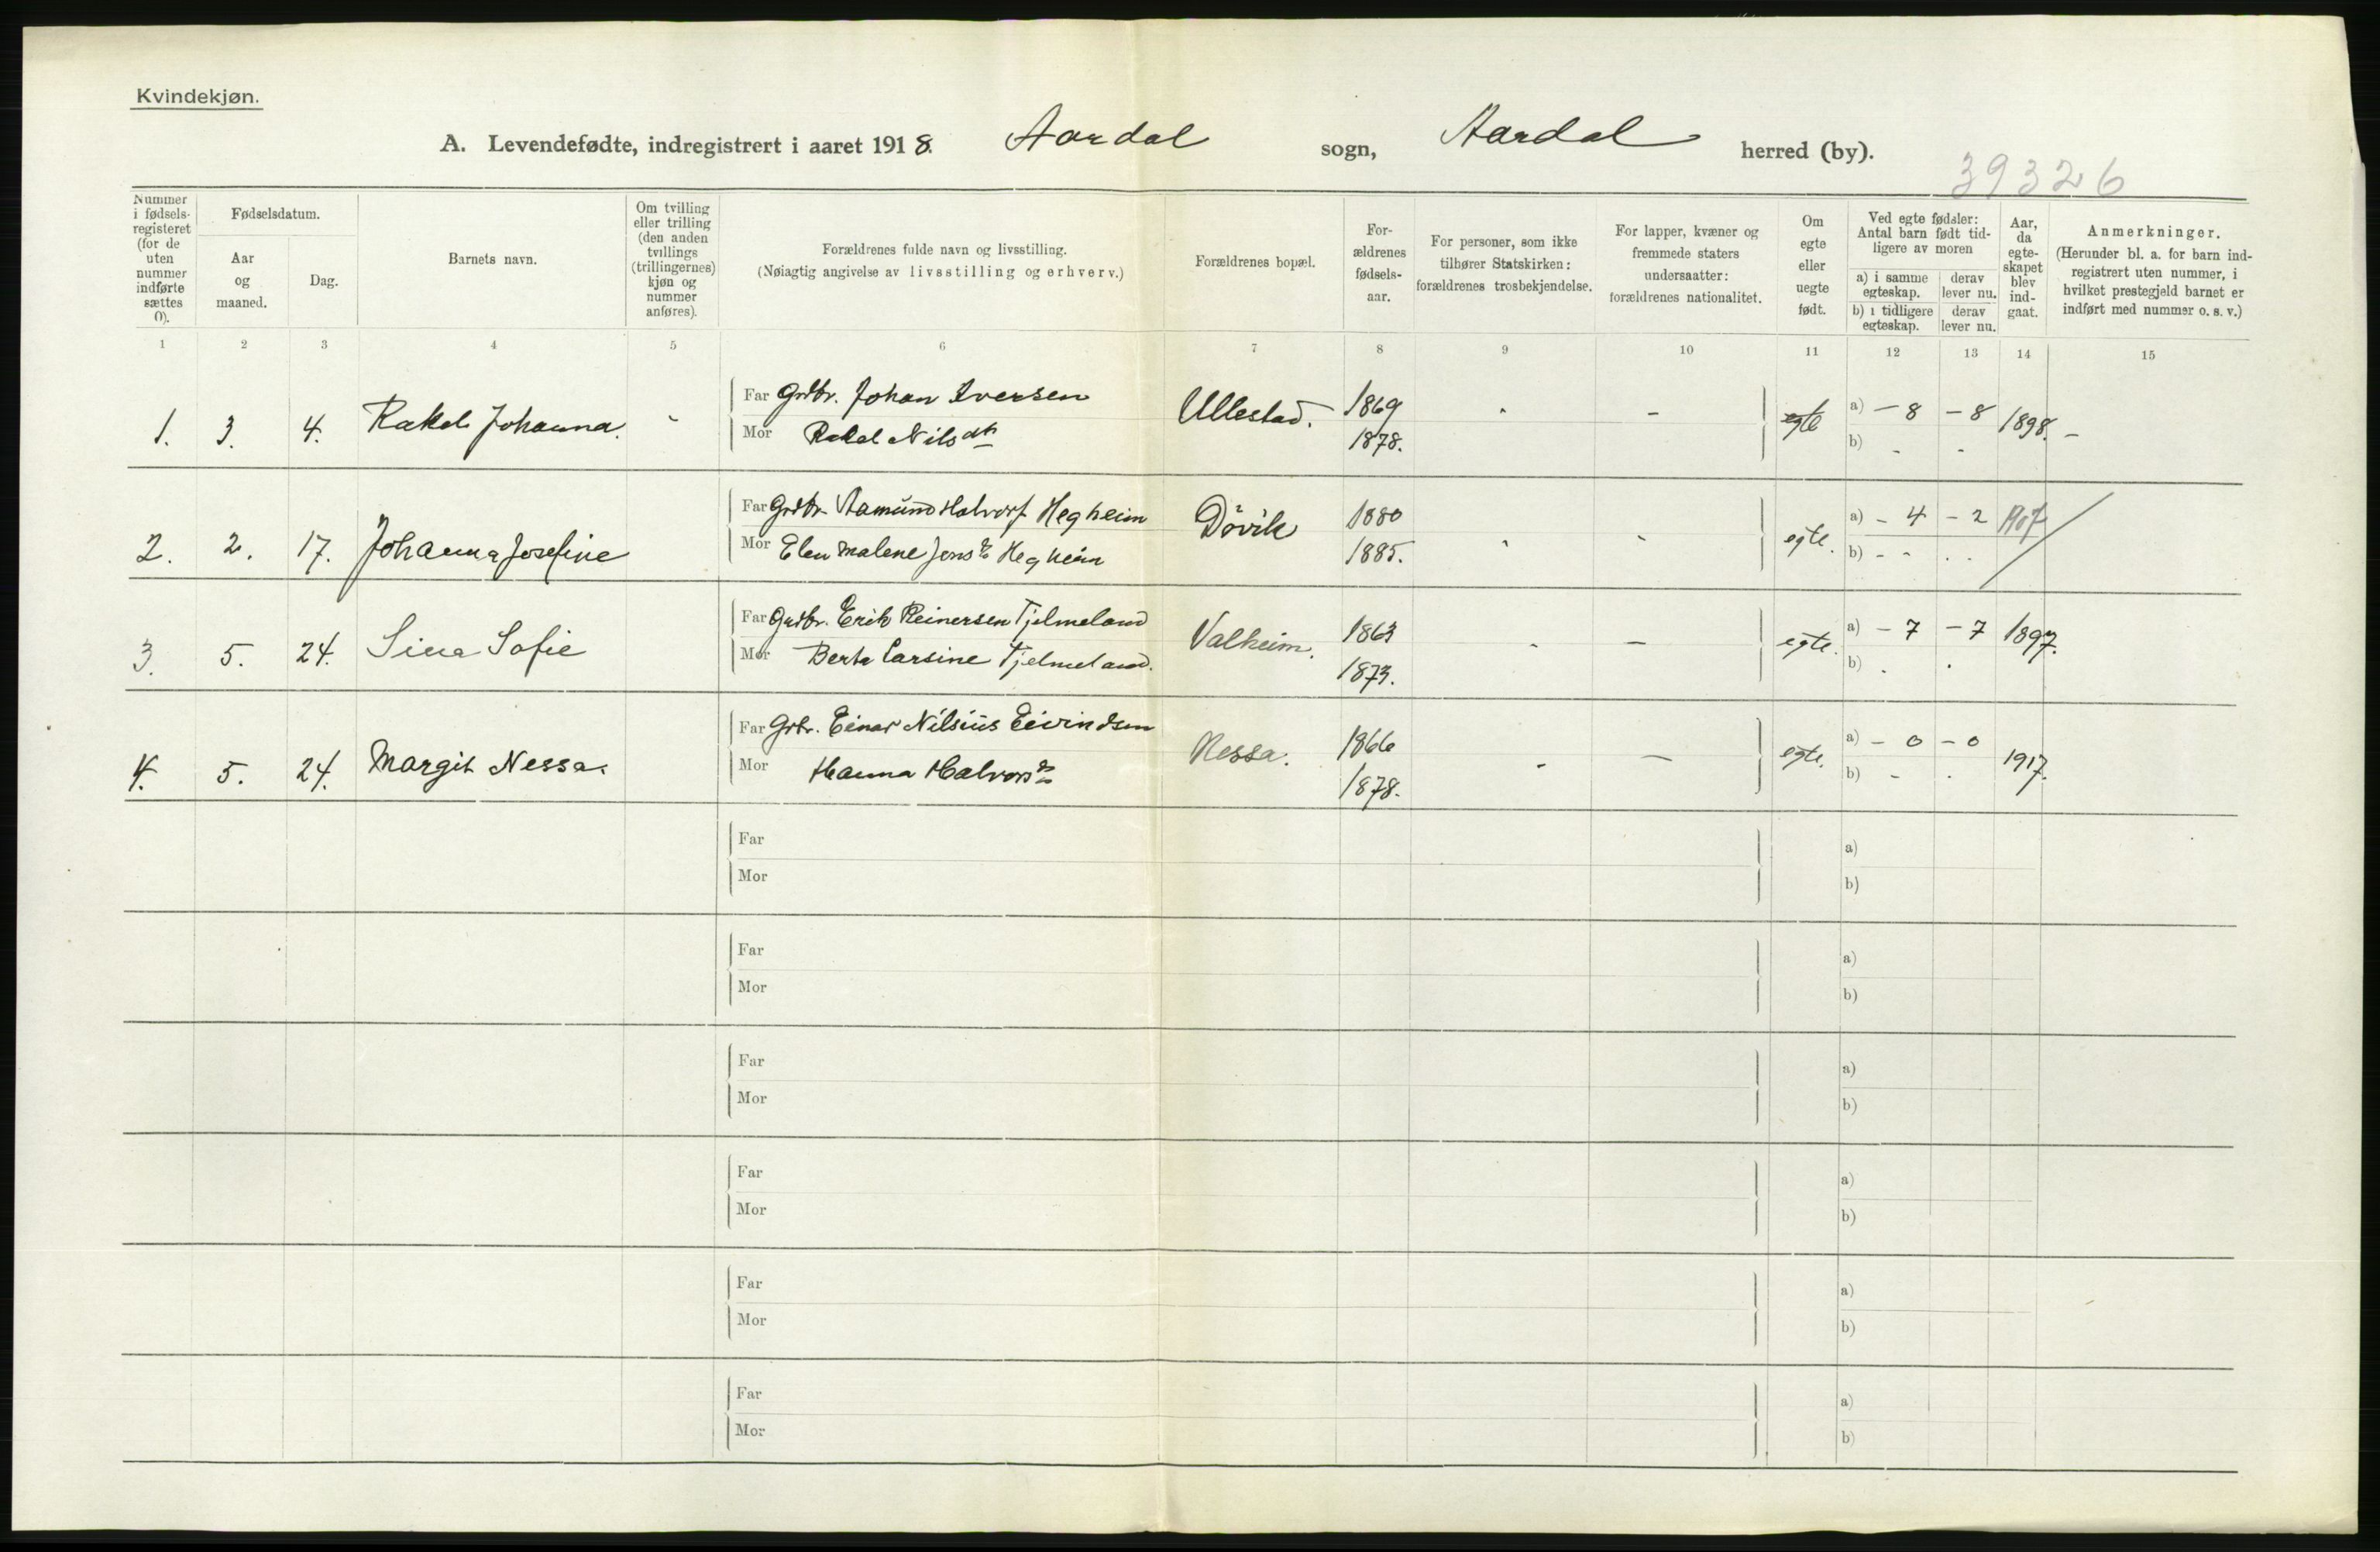 Kvindekjøn.
A. Levendefødte, indregistrert i aaret 1918. Aardal sogn, Aardal herred (by).
39326
Nummer i fødsels-registeret (for de uten nummer indførte sættes 0).
Fødselsdatum.
Aar og maaned.
Dag.
Barnets navn.
Om tvilling eller trilling (den anden tvillings (trillingernes) kjøn og nummer anføres).
Forældrenes fulde navn og livsstilling.
(Nøiagtig angivelse av livsstilling og erhverv.)
Forældrenes bopæl.
For-ældrenes fødsels-aar.
For personer, som ikke tilhører Statskirken: forældrenes trosbekjendelse.
For lapper, kvæner og fremmede staters undersaatter: forældrenes nationalitet.
Om egte eller uegte født.
Ved egte fødsler: Antal barn født tid-ligere av moren
a) i samme egteskap.
derav lever nu.
b) i tidligere egteskap.
derav lever nu.
Aar, da egte-skapet blev ind-gaat.
Anmerkninger.
(Herunder bl. a. for barn ind-registrert uten nummer, i hvilket prestegjeld barnet er indført med nummer o. s. v.)
1 2 3 4 5 6 7 8 9 10 11 12 13 14 15
1. 3. 4. Rakel Johanna. - Far Grdbr. Johan Iversen Ullestad. 1869 - - egte a) - 8 - 8 1898. -
Mor Rakel Nilsdt 1878. b) - -
2. 2. 17. Johanna Josefine Far Grdbr. Aamund Halvors. Hegheim Dövik 1880 - - egte. a) - 4 - 2 1907
Mor Elen Malene Jonsdt Hegheim 1885. b) - - - -
3. 5. 24. Sina Sofie Far Grdbr. Erik Reinersen Tjelmeland Valheim. 1863 - - egte. a) - 7 - 7 1897.
Mor Berta Larsine Tjelmeland. 1873. b) - -
4. 5. 24. Margit Nessa. Far Grbr. Einar Nilsius Eivindsen Nessa. 1866 - - egte. a) - 0 - 0 1917.
Mor Hanna Halvorsdt 1878. b) - -
Far a)
Mor b)
Far a)
Mor b)
Far a)
Mor b)
Far a)
Mor b)
Far a)
Mor b)
Far a)
Mor b)